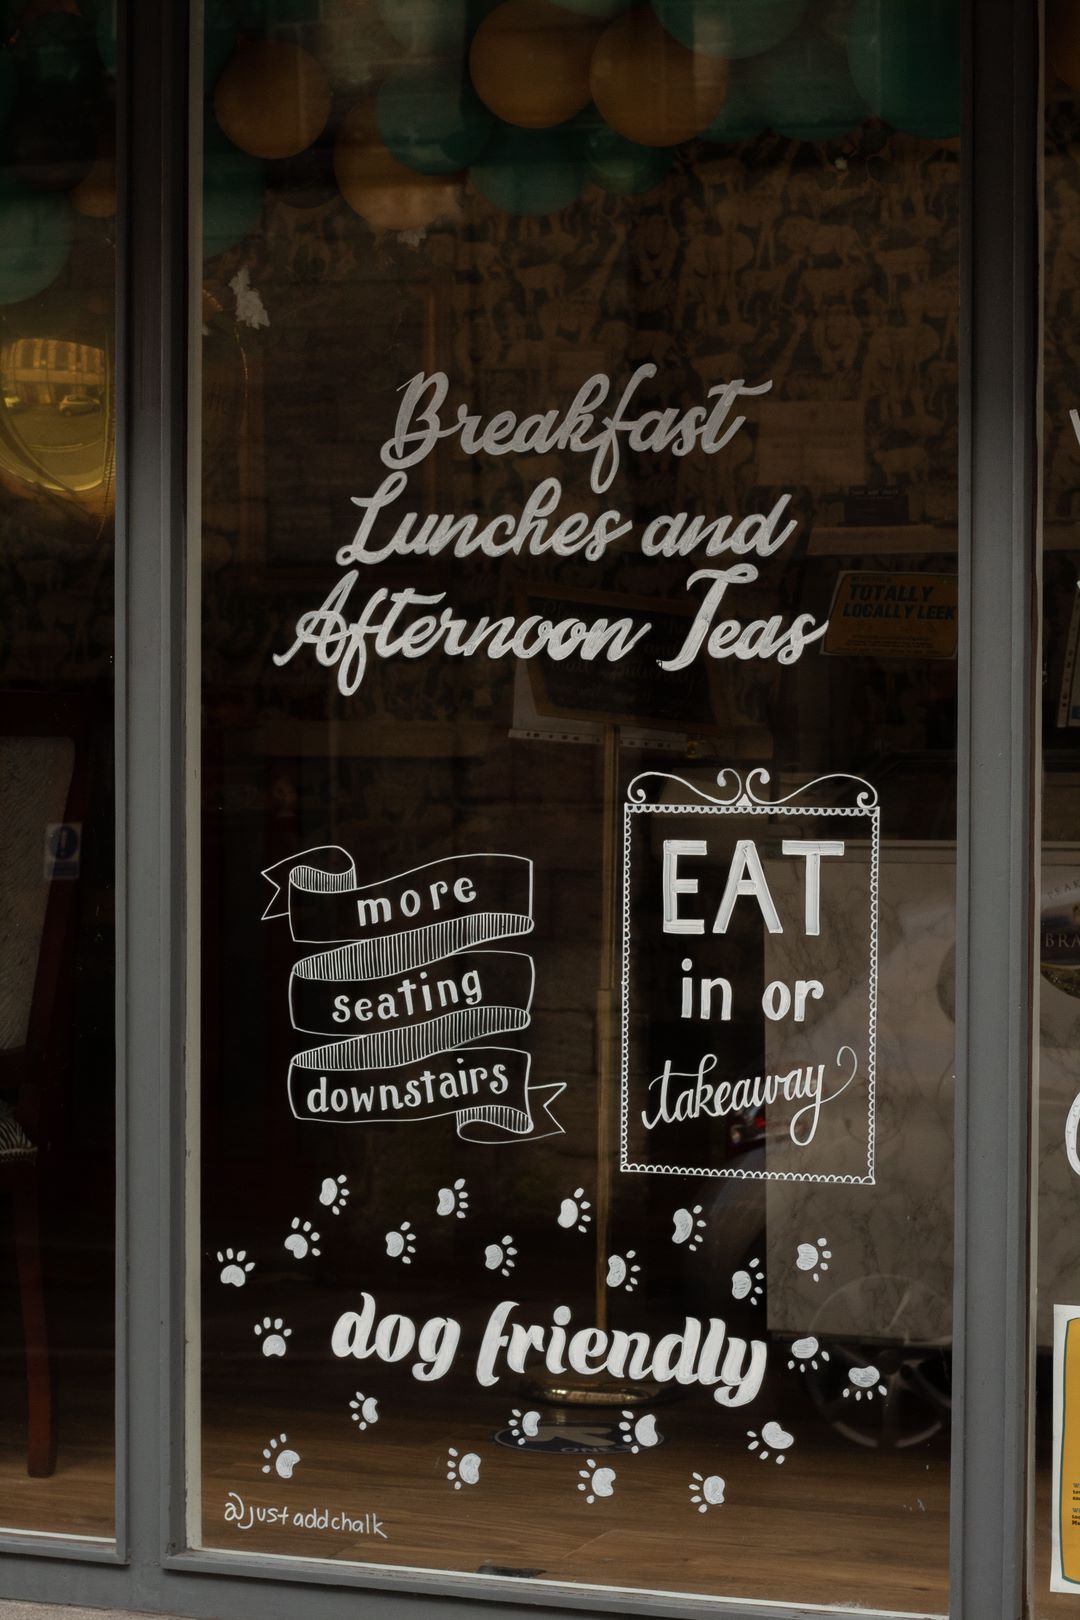 Breakfast
Lunches and
Afternoon Teas
TOTALLY
LOCALLY LEEK
more
seating
downstairs
EAT
in or
takeaway
dog friendly
@justaddchalk